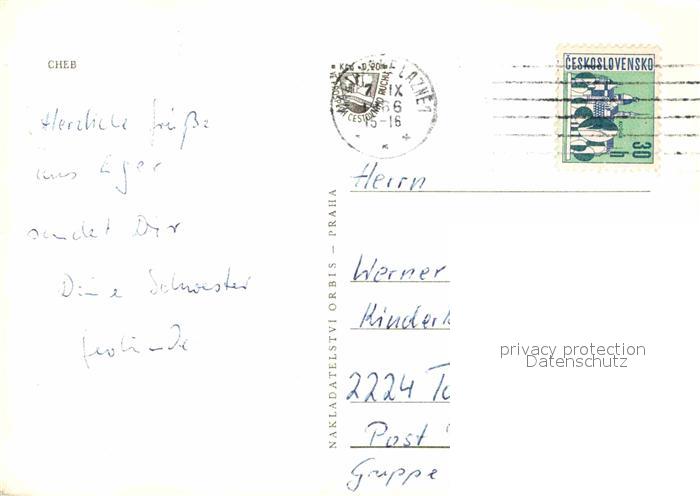 CHEB
Herzliche Grüße
aus Eger
sendet Dir
Deine Schwester
NAKLADATELSTVÍ ORBIS — PRAHA
Kčs 0,90
LÁZNĚ 1
7 IX
66
15-16
ČESKOSLOVENSKO
30
h
Herrn
Werner
Kinder
2224 To
Post
Gruppe
privacy protection
Datenschutz